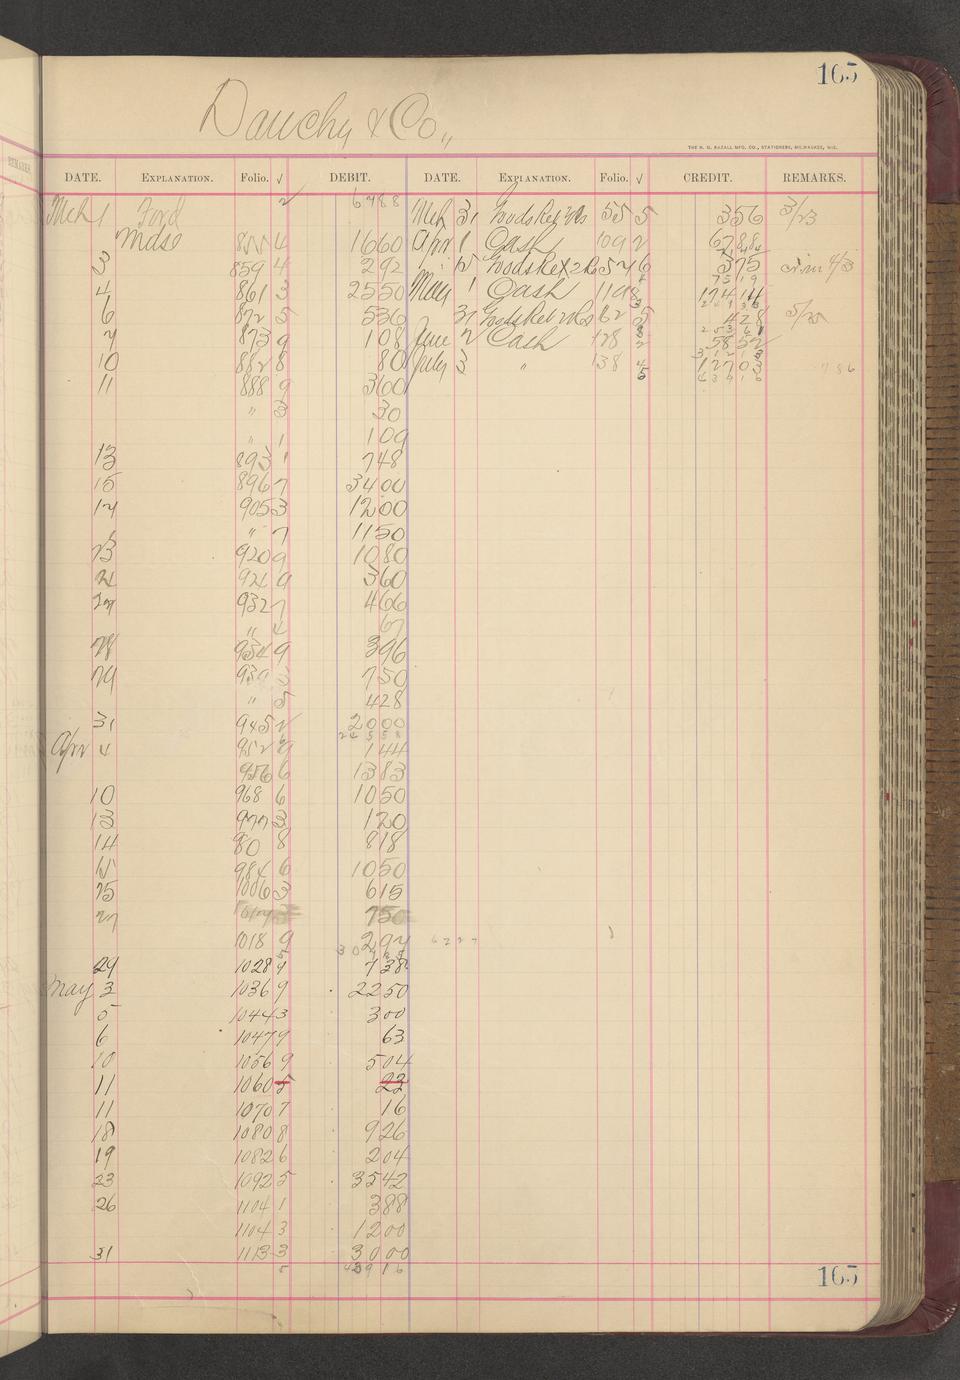 165
Dauchy & Co.,,
THE H. G. RAZALL MFG. CO., STATIONERS, MILWAUKEE, WIS.
REMARKS.
DATE. EXPLANATION. Folio. √ DEBIT. DATE. EXPLANATION. Folio. √ CREDIT. REMARKS.
Mch 1 Ford 2 6788 Mch 31 Goods Ret 55 5 356 3/23
Mdse 4 1660 Apr 1 Cash 109 2 6788
3 859 4 292 15 Goods Ret 57 6 375 4/3
7519
4 861 3 2550 May 1 Cash 119 17414
6 872 5 536 31 Goods Retd 62 5 428 5/25
25361
7 873 9 108 June 2 Cash 128 2 5852
10 882 8 80 July 3 " 138 12703
43916 786
11 888 9 360
" 3 30
" 1 109
13 893 1 748
15 896 7 3400
17 905 3 1200
" 7 1150
23 920 9 1080
24 926 9 360
27 932 7 466
" 4 67
28 934 9 396
29 939 750
" 5 428
31 945 2 2000
24558
Apr 4 952 9 144
956 6 1383
10 968 6 1050
13 977 3 120
14 80 8 818
15 984 6 1050
25 1006 3 615
27 750
1018 9 297 6227
29 1028 9 738
May 3 1036 9 2250
5 1044 3 300
6 1047 9 63
10 1056 9 504
11 1060 5 22
11 1070 7 16
18 1080 8 926
19 1082 6 204
23 1092 5 3542
26 1104 1 388
1104 3 1200
31 1113 3 3000
5 43916
165